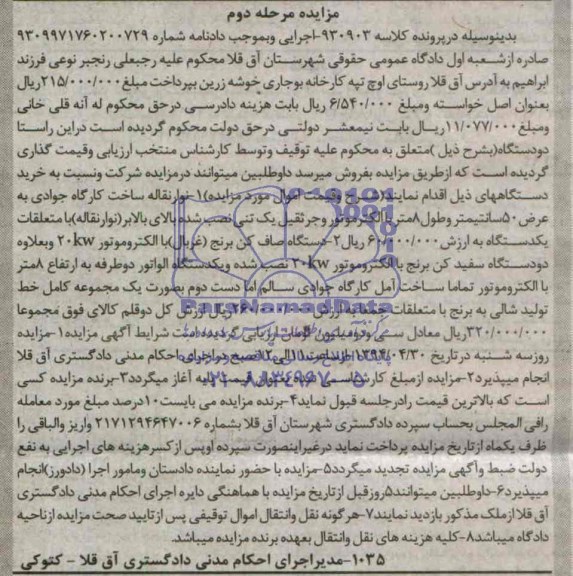 مزایده مرحله دوم
بدینوسیله درپرونده کلاسه ۹۳۰۹۰۳-اجرایی وبموجب دادنامه شماره ۹۳۰۹۹۷۱۷۶۰۲۰۰۷۲۹
صادره ازشعبه اول دادگاه عمومی حقوقی شهرستان آق قلا محکوم علیه رجبعلی رنجبر نوعی فرزند
ابراهیم به آدرس آق قلا روستای اوچ تپه کارخانه بوجاری خوشه زرین بپرداخت مبلغ۲۱۵/۰۰۰/۰۰۰ریال
بعنوان اصل خواسته ومبلغ ۶/۵۴۰/۰۰۰ ریال بابت هزینه دادرسی درحق محکوم له آنه قلی خانی
ومبلغ۱۱/۰۷۷/۰۰۰ریال بابت نیمعشر دولتی درحق دولت محکوم گردیده است دراین راستا
دودستگاه(بشرح ذیل )متعلق به محکوم علیه توقیف وتوسط کارشناس منتخب ارزیابی وقیمت گذاری
گردیده است که ازطریق مزایده بفروش میرسد داوطلبین میتوانند درمزایده شرکت ونسبت به خرید
دستگاههای ذیل اقدام نمایند(شرح وقیمت اموال مورد مزایده)۱-نوارنقاله ساخت کارگاه جوادی به
عرض ۵۰سانتیمتر وطول۸متر با الکتروموتور وجرثقیل یک تنی نصب شده بالای بالابر(نوارنقاله)با متعلقات
یکدستگاه به ارزش ۶۰/۰۰۰/۰۰۰ ریال۲-دستگاه صاف کن برنج (غربال)با الکتروموتور ۲۰kw وبعلاوه
دودستگاه سفید کن برنج با الکتروموتور ۳۰kw نصب شده ویکدستگاه الواتور دوطرفه به ارتفاع ۸متر
با الکتروموتور تماما ساخت آمل کارگاه جوادی سالم اما دست دوم بصورت یک مجموعه کامل خط
تولید شالی به برنج با متعلقات جمعا به ارزش ۲۶۰/۰۰۰/۰۰۰ریال ارزش کل دوقلم کالای فوق مجموعا
۳۲۰/۰۰۰/۰۰۰ریال معادل سی ودومیلیون تومان ارزیابی گردیده است شرایط آگهی مزایده۱-مزایده
روزسه شنبه درتاریخ ۱۳۹۴/۰۴/۳۰ ازساعت۱۱الی۱۲صبح دراجرای احکام مدنی دادگستری آق قلا
انجام میپذیرد۲-مزایده ازمبلغ کارشناسی قیمت پایه آغاز میگردد۳-برنده مزایده کسی
است که بالاترین قیمت رادرجلسه قبول نماید۴-برنده مزایده می بایست۱۰درصد مبلغ مورد معامله
رافی المجلس بحساب سپرده دادگستری شهرستان آق قلا بشماره ۲۱۷۱۲۹۴۶۴۷۰۰۶ واریز والباقی را
ظرف یکماه ازتاریخ مزایده پرداخت نماید درغیراینصورت سپرده اوپس ازکسرهزینه های اجرایی به نفع
دولت ضبط وآگهی مزایده تجدید میگردد۵-مزایده با حضور نماینده دادستان ومامور اجرا (دادورز)انجام
میپذیرد۶-داوطلبین میتوانند۵روزقبل ازتاریخ مزایده با هماهنگی دایره اجرای احکام مدنی دادگستری
آق قلا ازملک مذکور بازدید نمایند۷-هرگونه نقل وانتقال اموال توقیفی پس ازتایید صحت مزایده ازناحیه
دادگاه میباشد۸-کلیه هزینه های نقل وانتقال بعهده برنده مزایده میباشد.
۱۰۳۵-مدیراجرای احکام مدنی دادگستری آق قلا - کتوکی
ParsNamadData